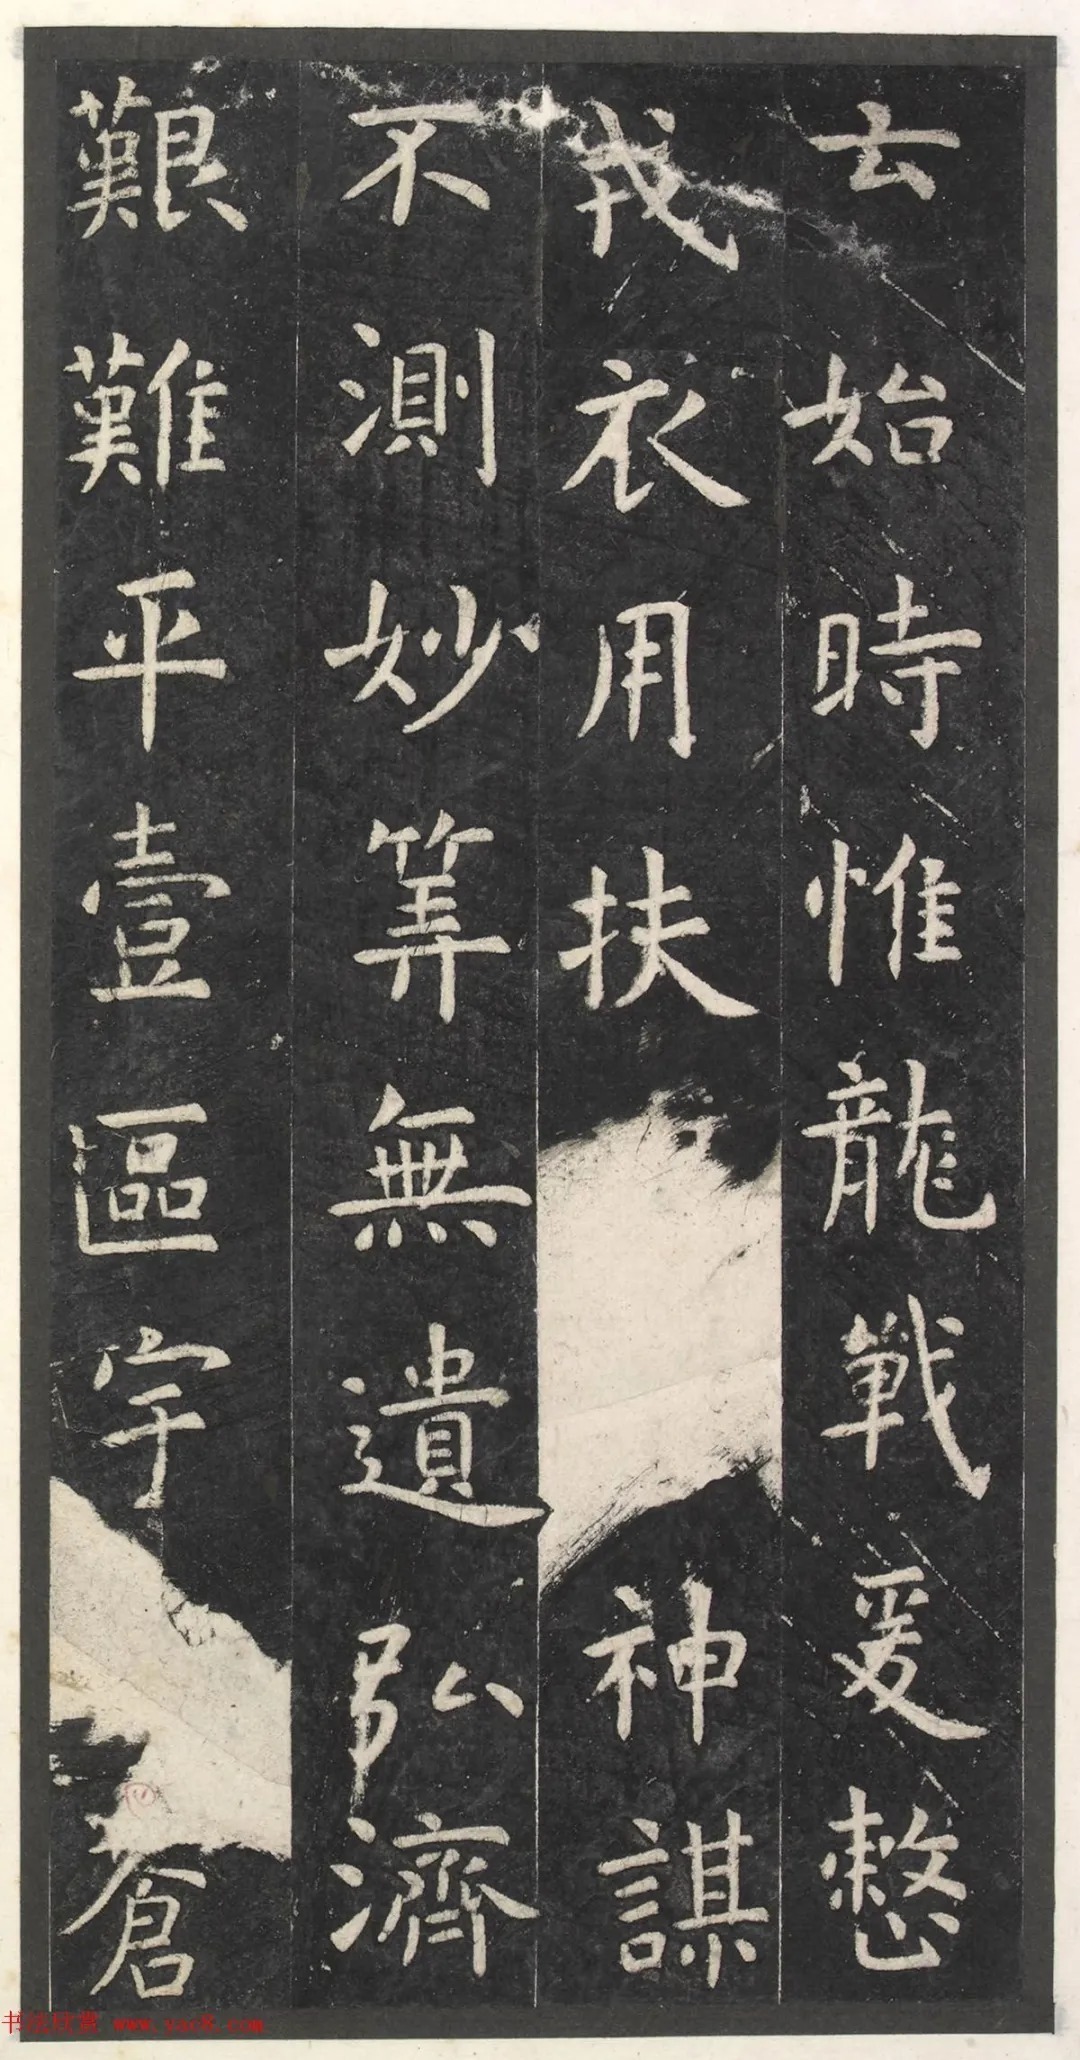 云始時惟龍戰爰整
戎衣用扶神謀
不測妙筭無遺弘濟
艱難平壹區宇蒼
书法欣赏 www.yac8.com